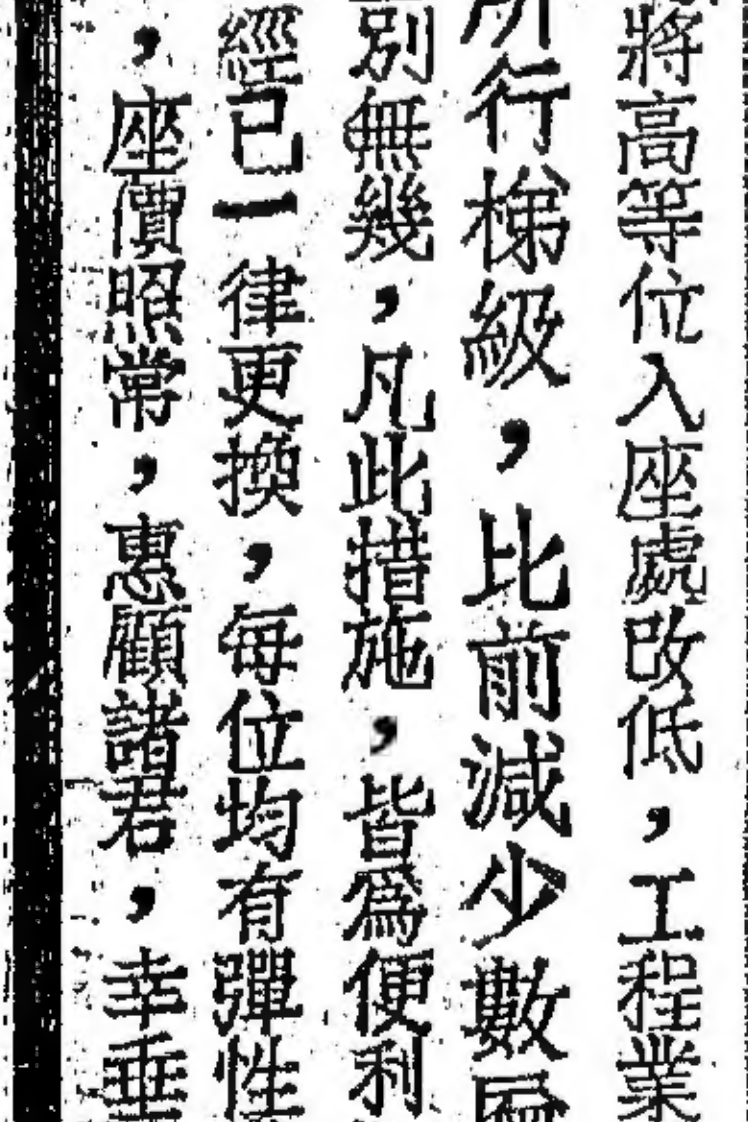 將高等位入座處改低，工程業
所行梯級，比前減少數層
別無幾，凡此措施，皆爲便利
經已一律更換，每位均有彈性
，座價照常，惠顧諸君，幸垂